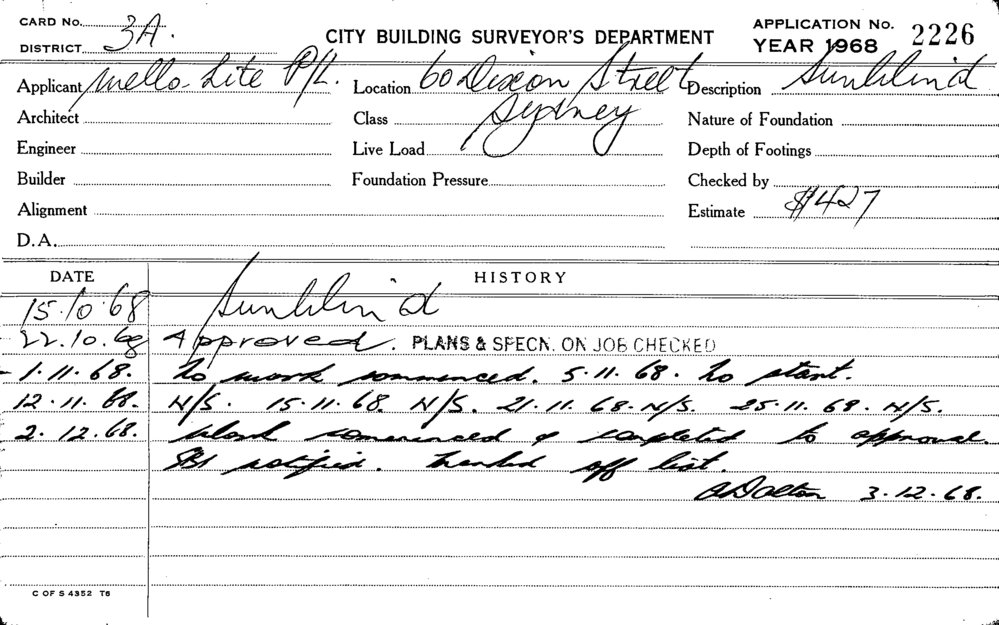 CARD No.
DISTRICT 3A.
CITY BUILDING SURVEYOR'S DEPARTMENT
APPLICATION No. 2226
YEAR 1968
Applicant Mello-Lite P/L. Location 60 Dixon Street Description Sunblind
Architect Class Sydney Nature of Foundation
Engineer Live Load Depth of Footings
Builder Foundation Pressure Checked by
Alignment Estimate $427
D.A.
DATE HISTORY
15.10.68 Sunblind
22.10.68 Approved. PLANS & SPECN. ON JOB CHECKED
1.11.68. No work commenced. 5.11.68. No start.
12.11.68. N/S. 15.11.68. N/S. 21.11.68. N/S. 25.11.68. N/S.
2.12.68. Work commenced & completed to approval.
notified. handed off list.
Dalton 3.12.68.
C OF S 4352 T6